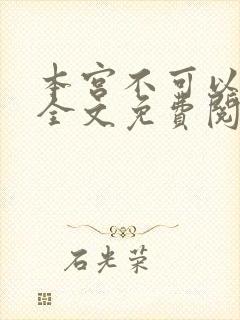 本宫不可以
全文免费阅
石光荣